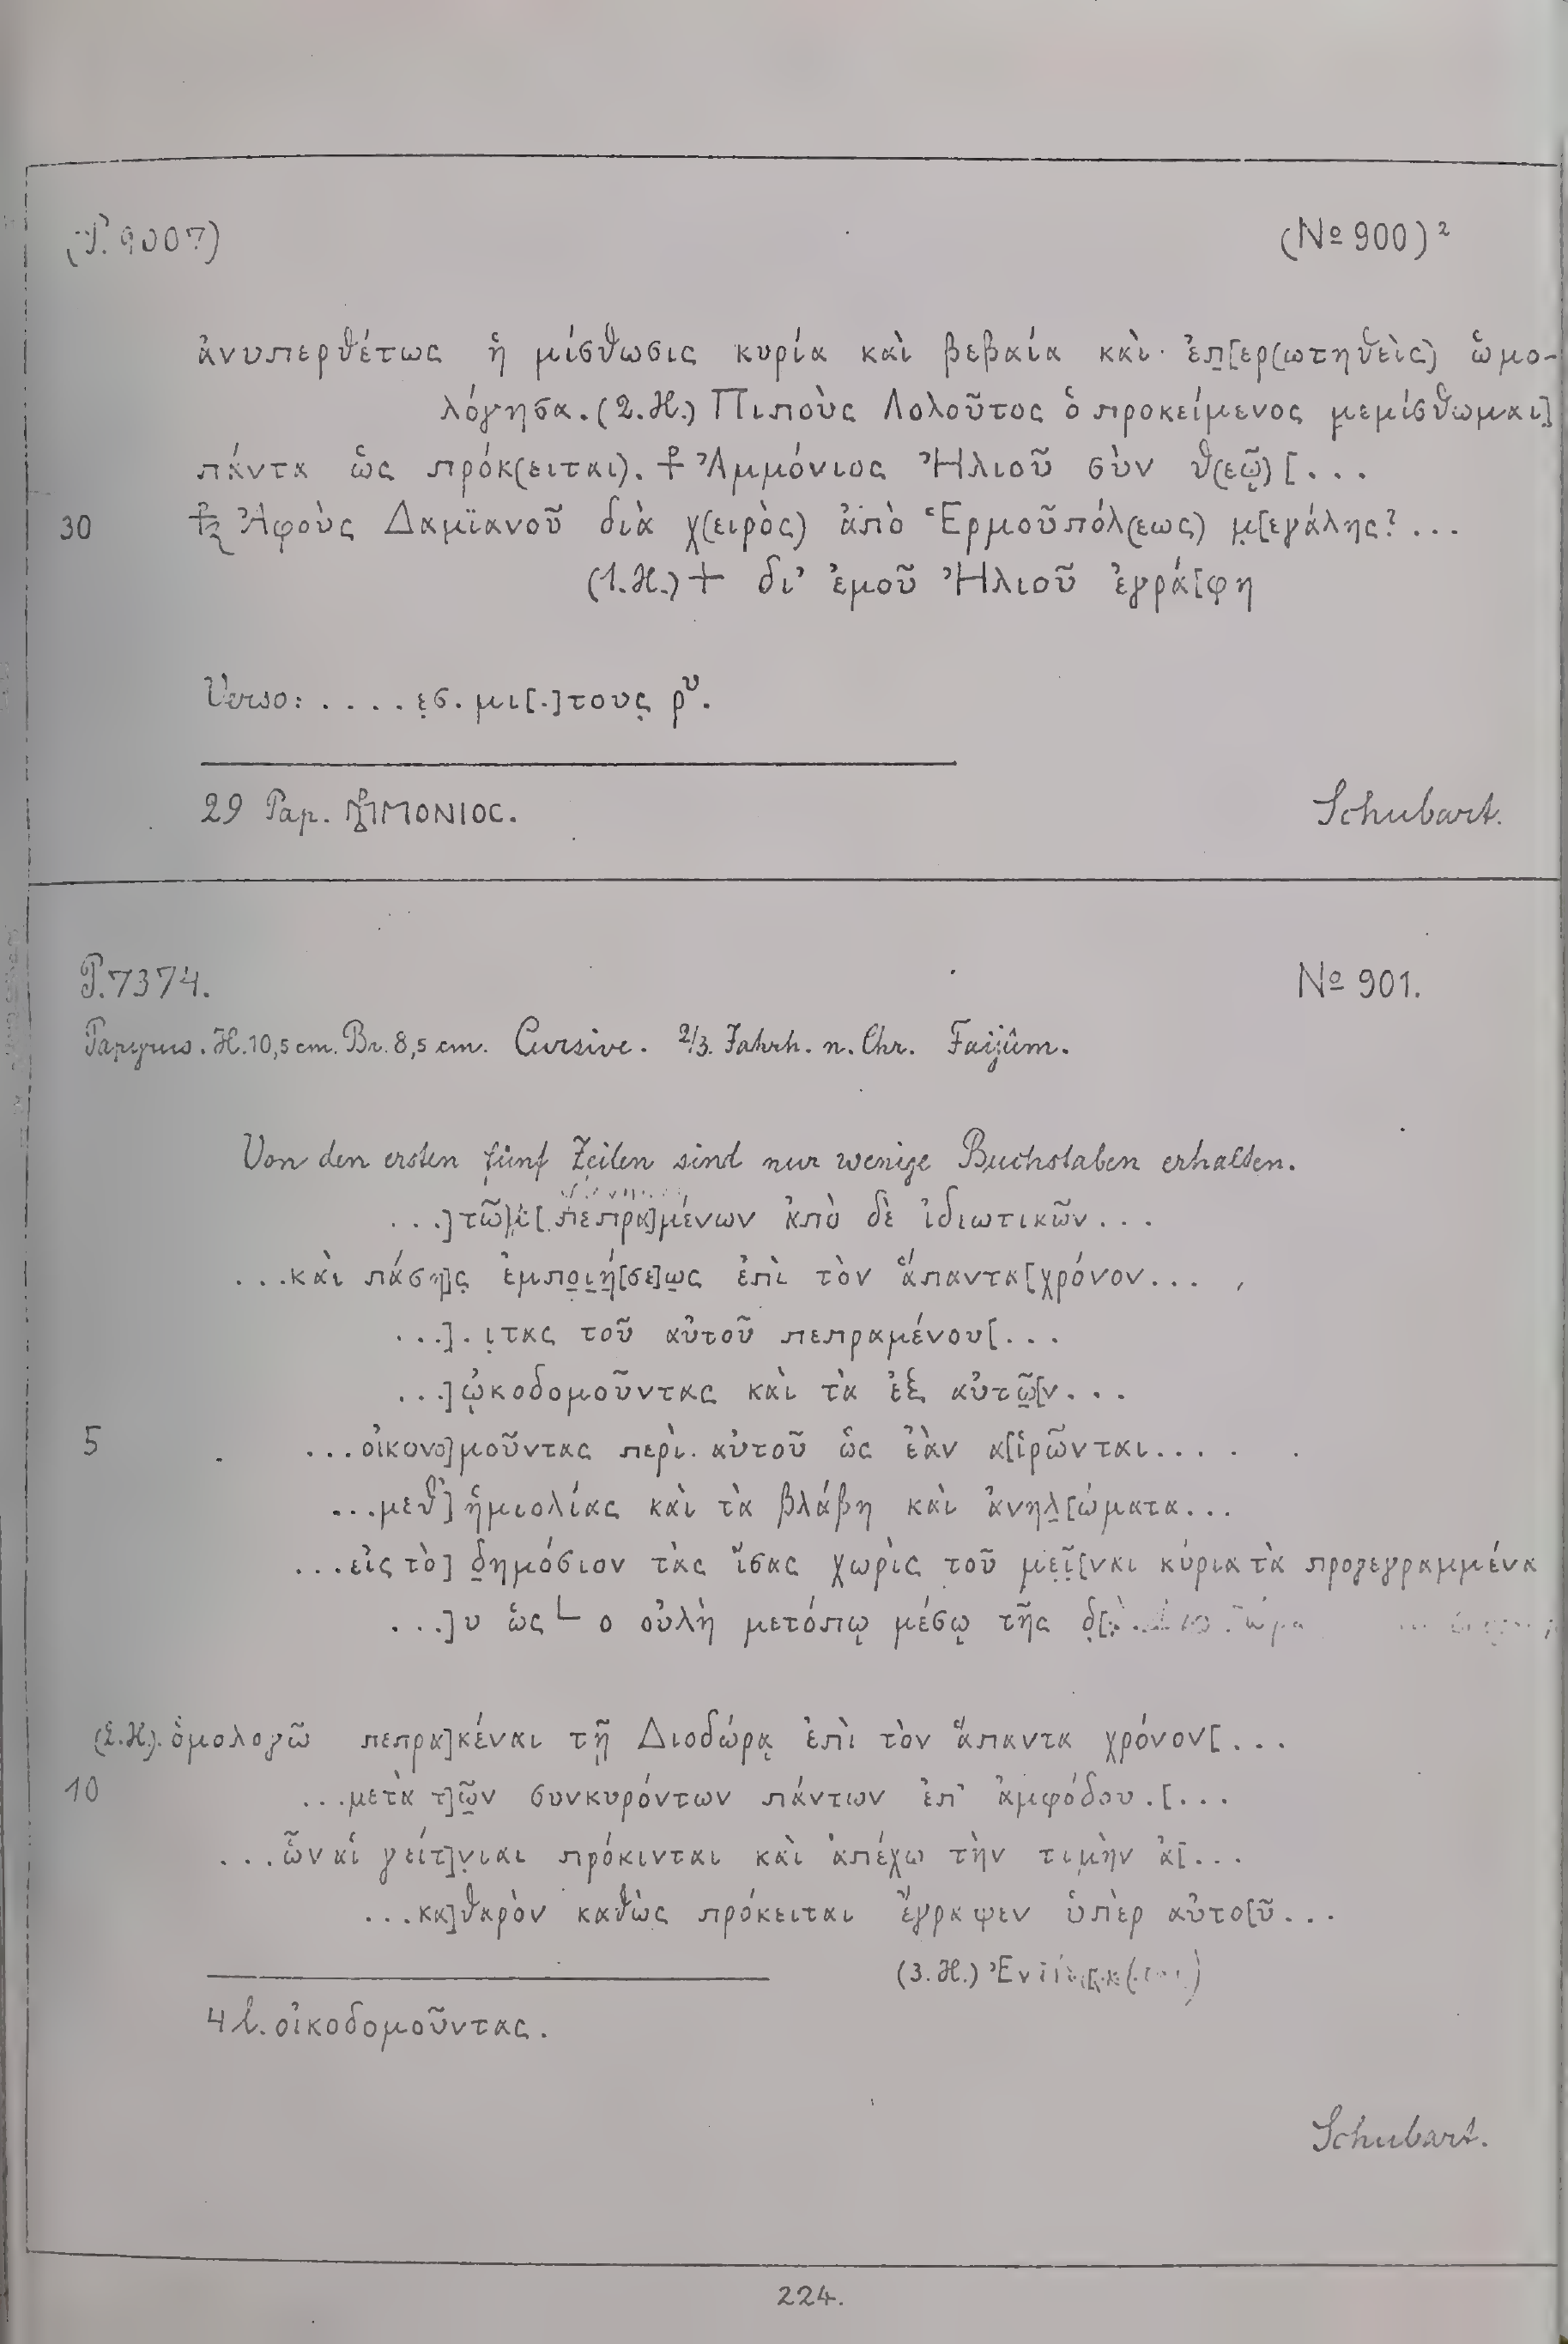 (P. 9007) (No 900)²
ἀνυπερθέτως ἡ μίσθωσις κυρία καὶ βεβαία καὶ ἐπ[ερ(ωτηθεὶς) ὡμο-
λόγησα. (2.H.) Πιποὺς Λολοῦτος ὁ προκείμενος μεμίσθωμαι]
πάντα ὡς πρόκ(ειται). ⳨ Ἀμμόνιος Ἠλιοῦ σὺν θ(εῷ) [...
30 ⳨ Ἀφοὺς Δαμϊανοῦ διὰ χ(ειρὸς) ἀπὸ Ἑρμοῦπόλ(εως) μ[εγάλης? ...
(1.H.) + δι' ἐμοῦ Ἠλιοῦ ἐγρά[φη
Verso: .... εσ. μι[.]τους ρυ.
29 Pap. ⳨ΑΜΜΟΝΙΟC.
Schubart.
P. 7374. No 901.
Papyrus. H. 10,5 cm. Br. 8,5 cm. Cursive. 2/3. Jahrh. n. Chr. Faijûm.
Von den ersten fünf Zeilen sind nur wenige Buchstaben erhalten.
...] τῶν [πεπρα]μένων ἀπὸ δὲ ἰδιωτικῶν...
...καὶ πάση]ς ἐμποιή[σε]ως ἐπὶ τὸν ἅπαντα [χρόνον...
...]. ιτας τοῦ αὐτοῦ πεπραμένου[...
...] ᾠκοδομοῦντας καὶ τὰ ἐξ αὐτῶ[ν...
5 ...οἰκονο]μοῦντας περὶ αὐτοῦ ὡς ἐὰν α[ἱρῶνται...
...μεθ'] ἡμιολίας καὶ τὰ βλάβη καὶ ἀνηλ[ώματα...
...εἰς τὸ] δημόσιον τὰς ἴσας χωρὶς τοῦ μεῖ[ναι κύρια τὰ προγεγραμμένα
...]υ ὡς └ ο οὐλὴ μετόπῳ μέσῳ τῆς δ[
(2.H.). ὁμολογῶ πεπρα]κέναι τῇ Διοδώρᾳ ἐπὶ τὸν ἅπαντα χρόνον[...
10 ...μετὰ τ]ῶν συνκυρόντων πάντων ἐπ' ἀμφόδου.[...
...ὧν αἱ γείτ]νιαι πρόκινται καὶ ἀπέχω τὴν τιμὴν ἀ[...
...κα]θαρὸν καθὼς πρόκειται ἔγραψεν ὑπὲρ αὐτο[ῦ...
(3.H.)
4 l. οἰκοδομοῦντας.
Schubart.
224.